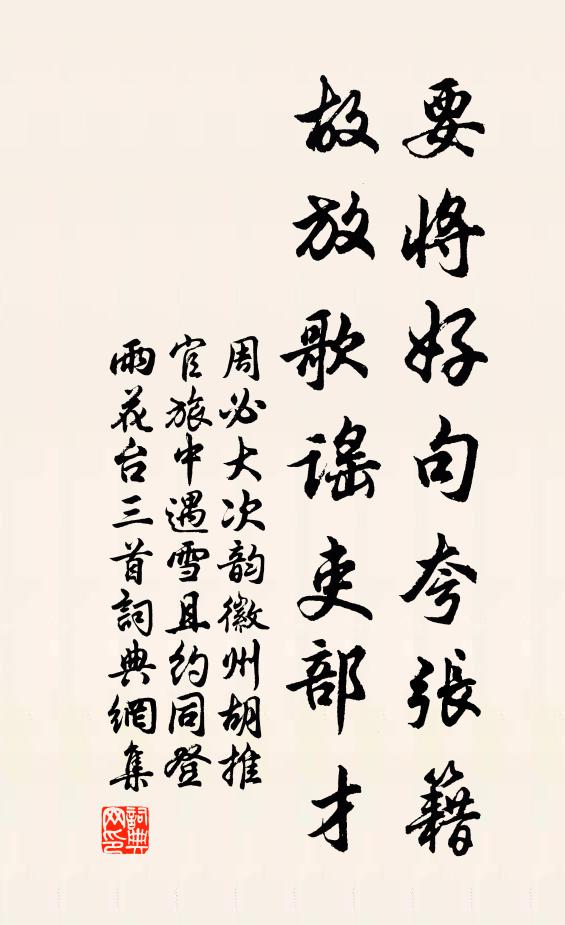 要將好句夸張籍
故放歌謠吏部才
周必大次韵徽州胡推
官旅中遇雪且約同登
雨花台三首詞典網集
詞典
网印